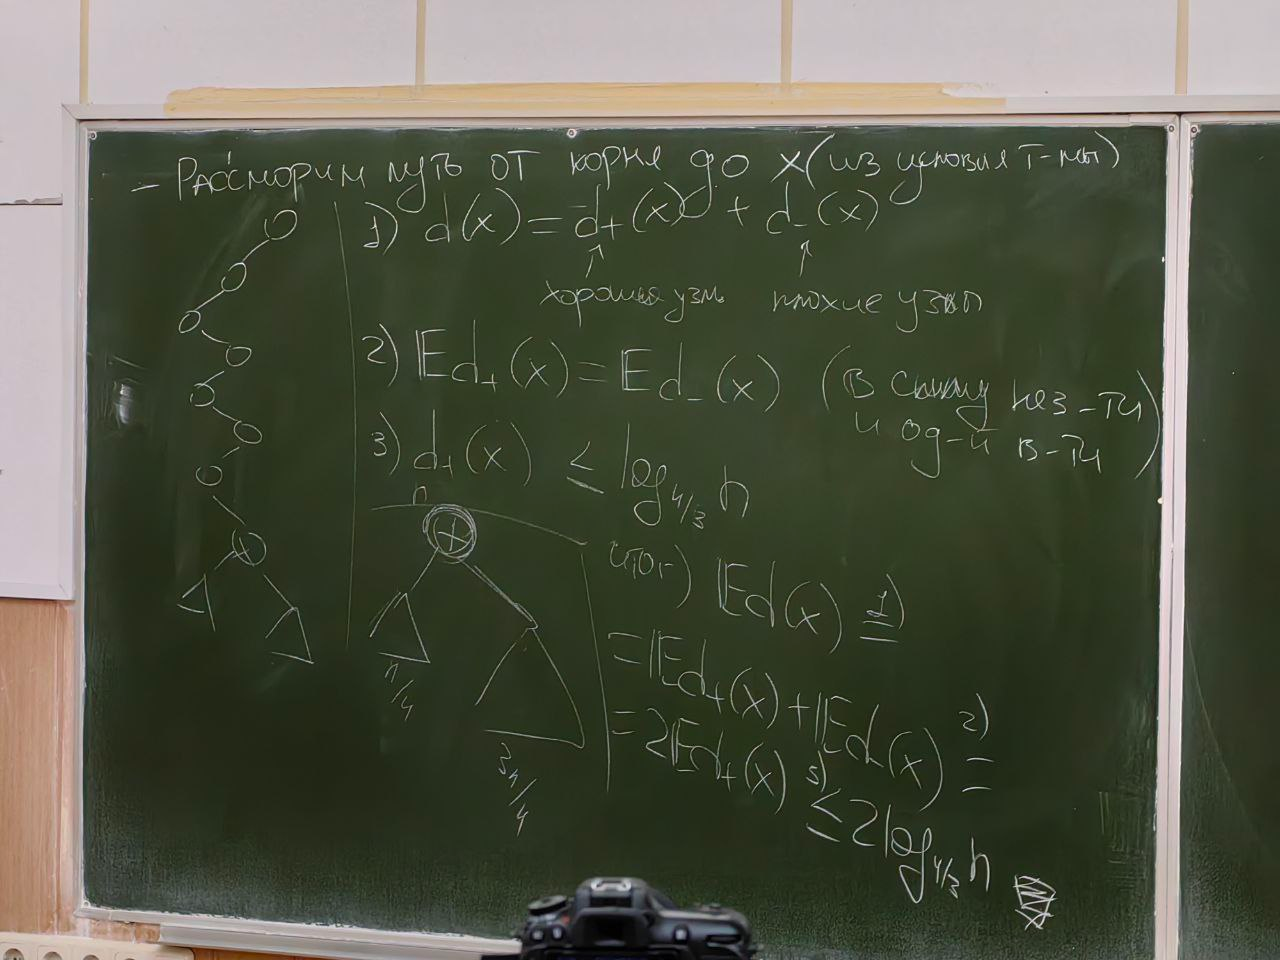 – Рассморим путь от корня до x (из условия Т-мы)
1) d(x) = d₊(x) + d₋(x)
↑ ↑
хорошие узлы плохие узлы
2) 𝔼d₊(x) = 𝔼d₋(x) (в силу нез-ти
и од-й в-ти)
3) d₊(x) ≤ log_{4/3} n
n
+
+
n/4
3n/4
итог) 𝔼d(x) =¹⁾
= 𝔼d₊(x) + 𝔼d₋(x) =²⁾
= 2𝔼d₊(x) ≤³⁾ 2 log_{4/3} n